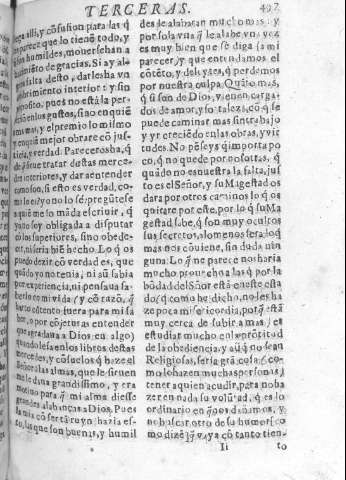 TERCERAS.
497
llega alli, y cõfusion para las q̃
les parece que lo tienẽ todo, y
son humildes, mouerse han a
hazimiẽto de gracias. Si ay al-
guna falta desto, darles ha vn
desabrimiento interior: y sin
proposito, pues no està la per-
fecion en los gustos, sino en quiẽ
ama mas, y el premio lo mismo
y en quiẽ mejor obrare cõ jus-
ticia, y verdad. Pareceros ha, q̃
de q̃ sirue tratar destas merce-
des interiores, y dar a entender
como son, si esto es verdad, co-
mo lo es? yo no lo sè: pregũtese
a quiẽ me lo mãda escriuir, q̃
yo no soy obligada a disputar
cõ los superiores, sino obede-
cer, ni seria biẽ hecho. Lo q̃ os
puedo dezir cõ verdad es, que
quãdo yo no tenia, ni aũ sabia
por experiencia, ni pensaua sa-
berlo en mi vida (y cõ razõ, q̃
harto cõtento fuera para mi sa-
ber, o por cõjeturas entender
que agradaua a Dios en algo)
quando leìa en los libros destas
mercedes, y cõsuelos q̃ haze el
Señor a las almas, que le siruen
me le daua grandissimo, y era
motiuo para q̃ mi alma diesse
grandes alabanças a Dios. Pues
la mia cõ ser tã ruyn hazia es-
to, las que son buenas, y humil
des le alabaràn mucho mas: y
por sola vna q̃ le alabe vna vez
es muy bien que se diga (a mi
parecer) y que entendamos el
cõtẽto, y deleytes, q̃ perdemos
por nuestra culpa. Quãto mas,
q̃ si son de Dios, vienen carga-
dos de amor, y fortaleza, cõ q̃ se
puede caminar mas sin trabajo
y yr creciẽdo en las obras, y vir
tudes. No pẽseys q̃ importa po
co, q̃ no quede por nosotras, q̃
quãdo no es nuestra la falta, jus
to es el Señor, y su Magestad os
darà por otros caminos lo q̃ os
quitare por este, por lo q̃ su Ma
gestad sabe, q̃ son muy ocultos
sus secretos, a lo menos serà lo q̃
mas nos cõuiene, sin duda nin
guna. Lo q̃ me parece nos haria
mucho prouecho a las q̃ por la
bõdad del Señor estã en este esta
do (q̃ como he dicho, no les ha
ze poca misericordia, porq̃ estã
muy cerca de subir a mas) es
estudiar mucho en la prõtitud
de la obediencia, y aũq̃ no sean
Religiosas, seria grã cosa (co-
mo lo hazen muchas personas)
tener a quien acudir, para no ha
zer en nada su volũtad, q̃ es lo
ordinario en q̃ nos dañamos, y
no buscar otro de su humor (co
mo dizẽ) q̃ vaya cõ tanto tien-
Ii
to